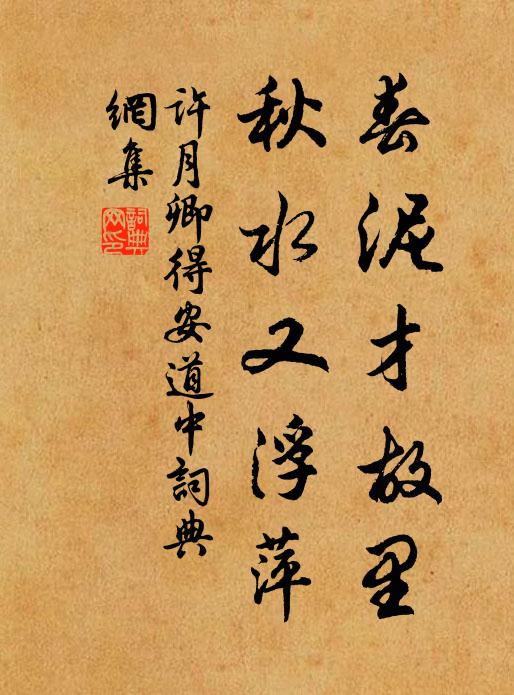 春泥才故里
秋水又浮萍
許月卿得安道中詞典
網集
詞典
网印